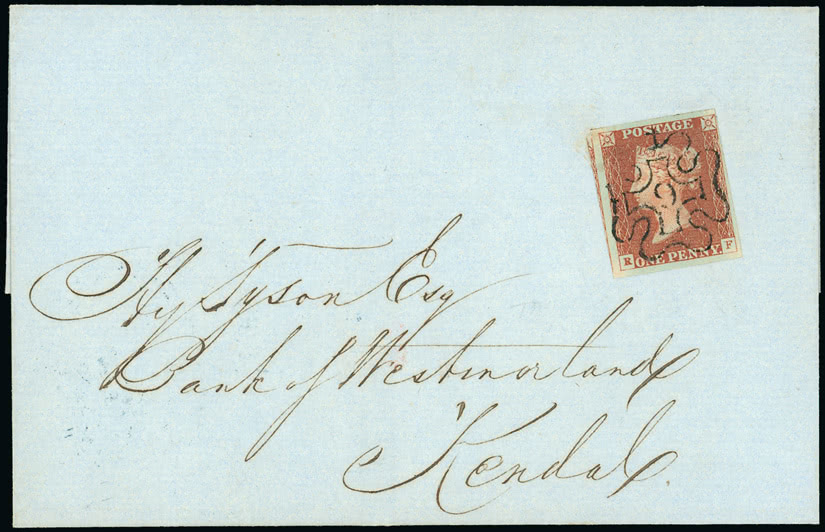 POSTAGE
9
ONE PENNY
R F
Hy Tyson Esq
Bank of Westmorland
Kendal.